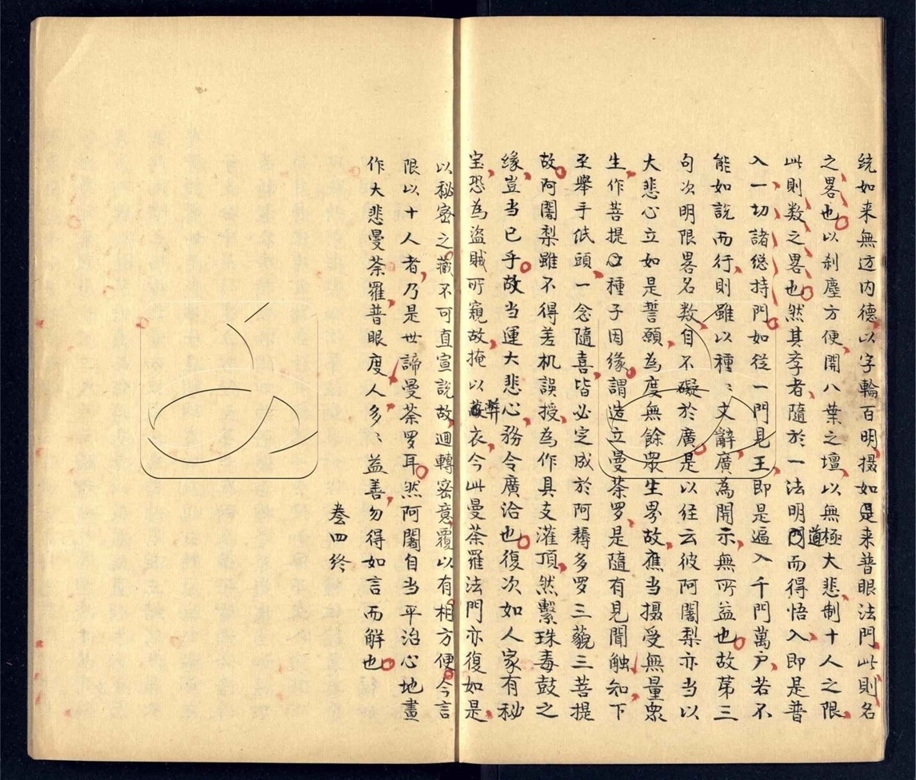 統如来無边内德以字輪百明摄如是来普眼法門此則名
之畧也以刹塵方便開八葉之壇以無極大悲制十人之限
此則数之畧也然其李者隨於一法明道門而得悟入即是普
入一切諸緫持門如從一門見王即是遍入千門萬户若不
能如説而行則雖以種〻文辭廣為開示無所益也故苐三
句次明限畧名数自不礙於廣是以径云彼阿闍梨亦当以
大悲心立如是誓願為度無餘衆生界故應当摄受無量衆
生作菩提之種子因缘謂造立曼荼罗是隨有見聞触知下
至舉手低頭一念隨喜皆必定成於阿耨多罗三藐三菩提
故阿闍梨雖不得差机誤授為作具支灌頂然繫珠毒鼓之
缘豈当已乎故当運大悲心務令廣洽也復次如人家有秘
宝恐為盜賊所窺故掩以弊衣今此曼荼羅法門亦復如是
以秘密之藏不可直宣説故迴轉密意覆以有相方便今言
限以十人者乃是世諦曼荼罗耳然阿闍自当平治心地畫
作大悲曼荼羅普眼度人多〻益善勿得如言而解也
卷四終